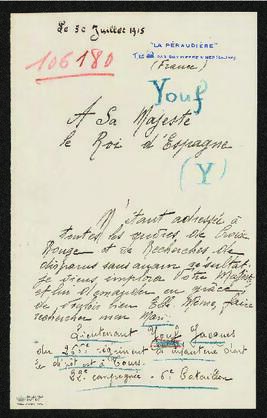 Le 30 Juillet 1915
"LA PÉRAUDIÈRE"
106180
(France)
Youf
A Sa Majesté
le Roi d'Espagne
(Y)
M'étant adressée à
toutes les œuvres de Croix
Rouge et de Recherches de
disparus sans aucun résultat
je viens implorer Votre Majesté
et lui demander en grâce
de vouloir bien Elle Même faire
rechercher mon Mari
Lieutenant Youf Jacques
du 25me régiment d'infanterie dont
le dépôt est à
22e compagnie - 6e Bataillon